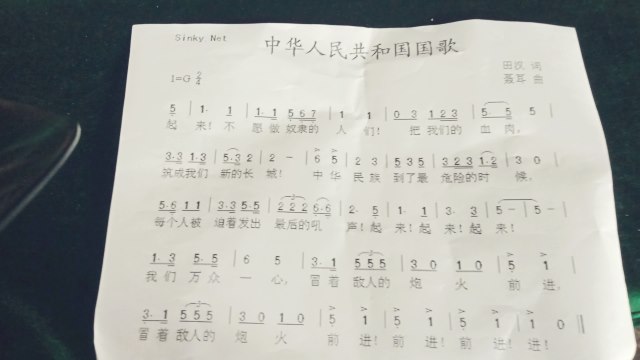 Sinky.Net
中华人民共和国国歌
田汉 词
1=G 2/4
聂耳 曲
5 | 1. 1 | 1.1 567 | 1 1 | 03 123 | 5 5
起来!不愿做奴隶的人们!把我们的血肉,
3.3 1.3 | 5.3 2 | 2 - | 6 5 | 2 3 | 535 | 323 1.2 | 3 0
筑成我们新的长城!中华民族到了最危险的时候,
5.6 11 | 3.3 5.5 | 222 6.6 | 2. 5 | 1. 1 | 3. 3 | 5 - | 5 -
每个人被迫着发出最后的吼声!起来!起来!起来!
1. 3 5. 5 | 6 5 | 3. 1 555 | 30 10 | 5 1
我们万众一心,冒着敌人的炮火前进,
3. 1 555 | 30 10 | 5 1 | 5 1 | 5 1 | 1
冒着敌人的炮火前进!前进!前进!进!